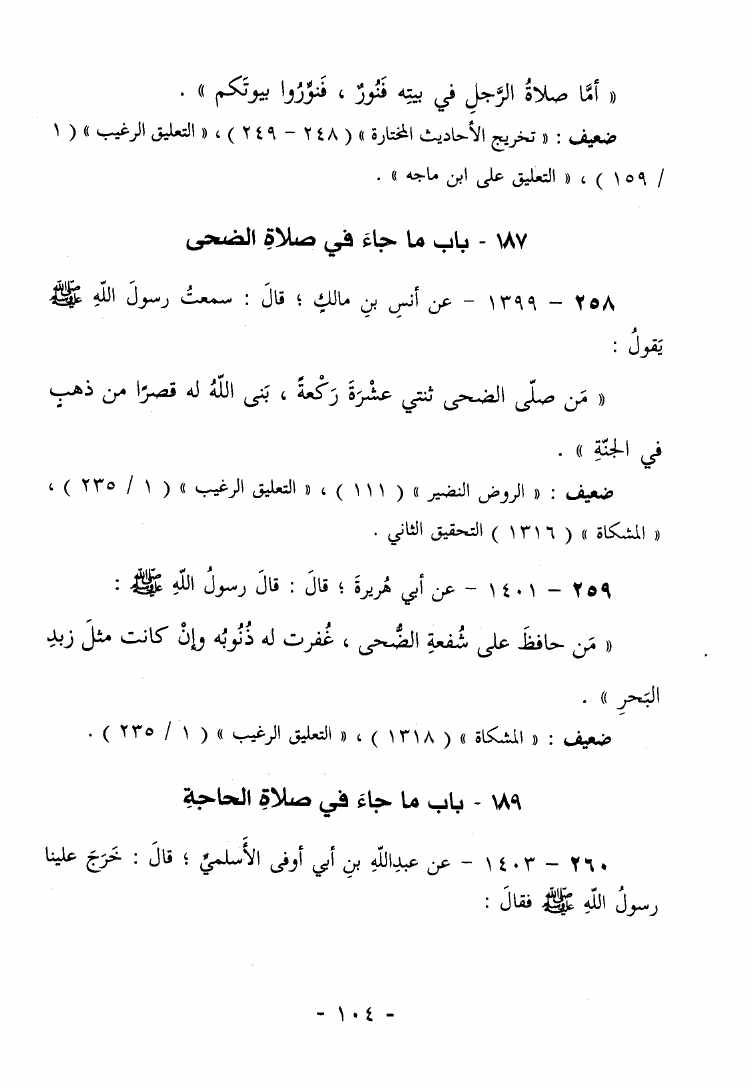 « أمَّا صلاةُ الرَّجلِ في بيتِه فَنُورٌ ، فَنوِّرُوا بيوتَكم » .
ضعيف : « تخريج الأحاديث المختارة » ( ٢٤٨ – ٢٤٩ ) ، « التعليق الرغيب » ( ١
/ ١٥٩ ) ، « التعليق على ابن ماجه » .
١٨٧ - باب ما جاءَ في صلاةِ الضحى
٢٥٨ – ١٣٩٩ – عن أنسِ بنِ مالكٍ ؛ قالَ : سمعتُ رسولَ اللّهِ ﷺ
يَقولُ :
« مَن صلّى الضحى ثنتي عشْرَةَ رَكْعةً ، بَنى اللّهُ له قصرًا من ذهبٍ
في الجنّةِ » .
ضعيف : « الروض النضير » ( ١١١ ) ، « التعليق الرغيب » ( ١ / ٢٣٥ ) ،
« المشكاة » ( ١٣١٦ ) التحقيق الثاني .
٢٥٩ – ١٤٠١ – عن أبي هُريرةَ ؛ قالَ : قالَ رسولُ اللّهِ ﷺ :
« مَن حافظَ على شُفعةِ الضُّحى ، غُفرت له ذُنُوبُه وإنْ كانت مثلَ زبدِ
البَحرِ » .
ضعيف : « المشكاة » ( ١٣١٨ ) ، « التعليق الرغيب » ( ١ / ٢٣٥ ) .
١٨٩ - باب ما جاءَ في صلاةِ الحاجةِ
٢٦٠ – ١٤٠٣ – عن عبدِاللّهِ بنِ أبي أوفى الأَسلميِّ ؛ قالَ : خَرَجَ علينا
رسولُ اللّهِ ﷺ فقالَ :
- ١٠٤ -